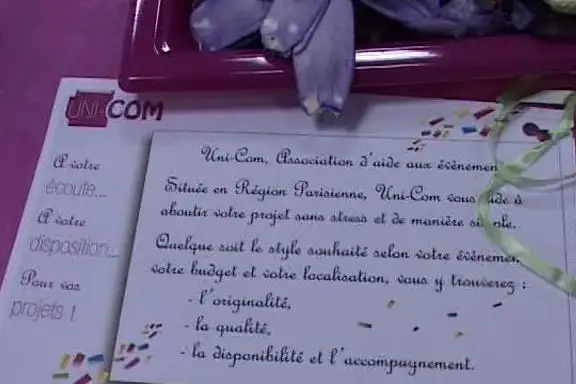 UNI-COM
A votre
écoute...
A votre
disposition...
Pour vos
projets !
Uni-Com, Association d'aide aux évènemen
Située en Région Parisienne, Uni-Com vous aide à
aboutir votre projet sans stress et de manière
Quelque soit le style souhaité selon votre évènemen
votre budget et votre localisation, vous y trouverez :
- l'originalité,
- la qualité,
- la disponibilité et l'accompagnement.